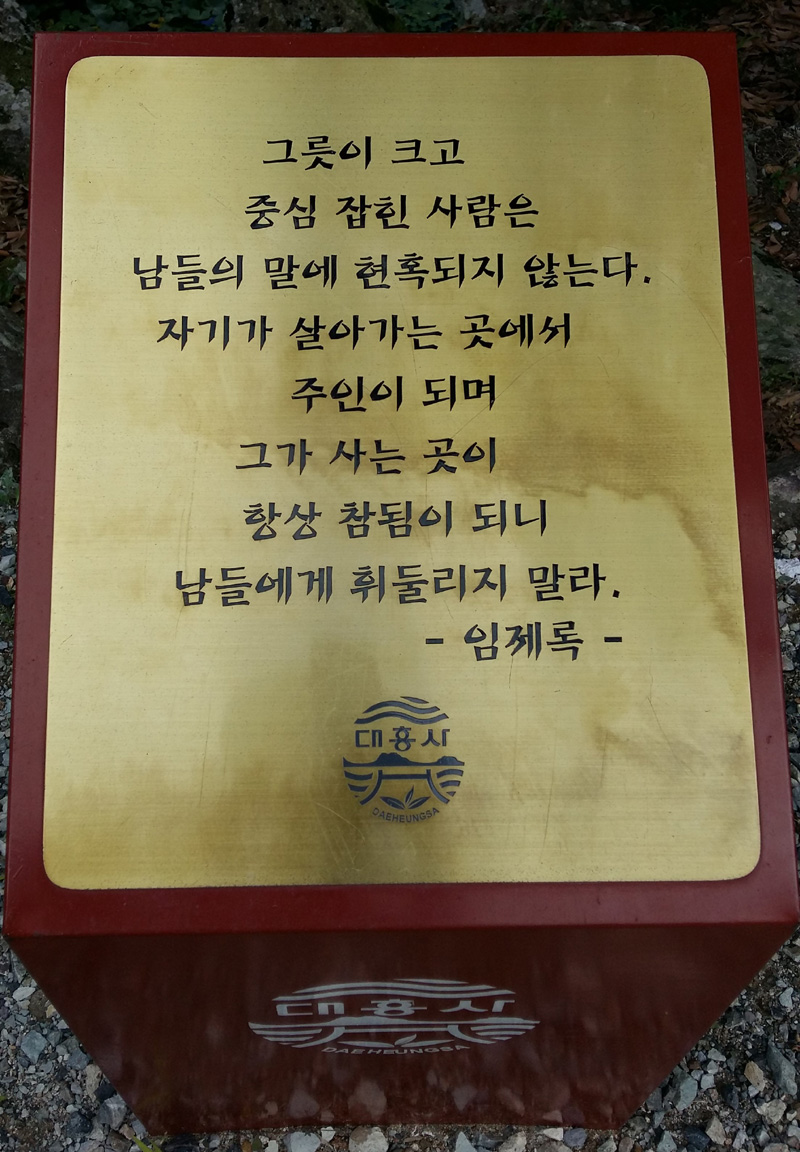 그릇이 크고
중심 잡힌 사람은
남들의 말에 현혹되지 않는다.
자기가 살아가는 곳에서
주인이 되며
그가 사는 곳이
항상 참됨이 되니
남들에게 휘둘리지 말라.
- 임제록 -
대흥사
DAEHEUNGSA
대흥사
DAEHEUNGSA